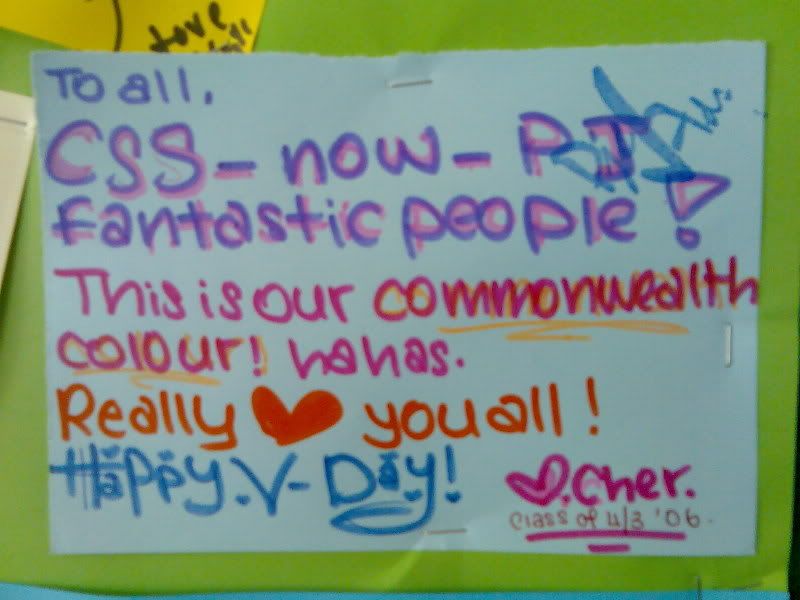 Love
To all,
CSS - now - PJ
fantastic people!
This is our commonwealth
colour! hahas.
Really ❤ you all!
Happy V-Day!
♥.Cher.
Class of 4/3 '06.